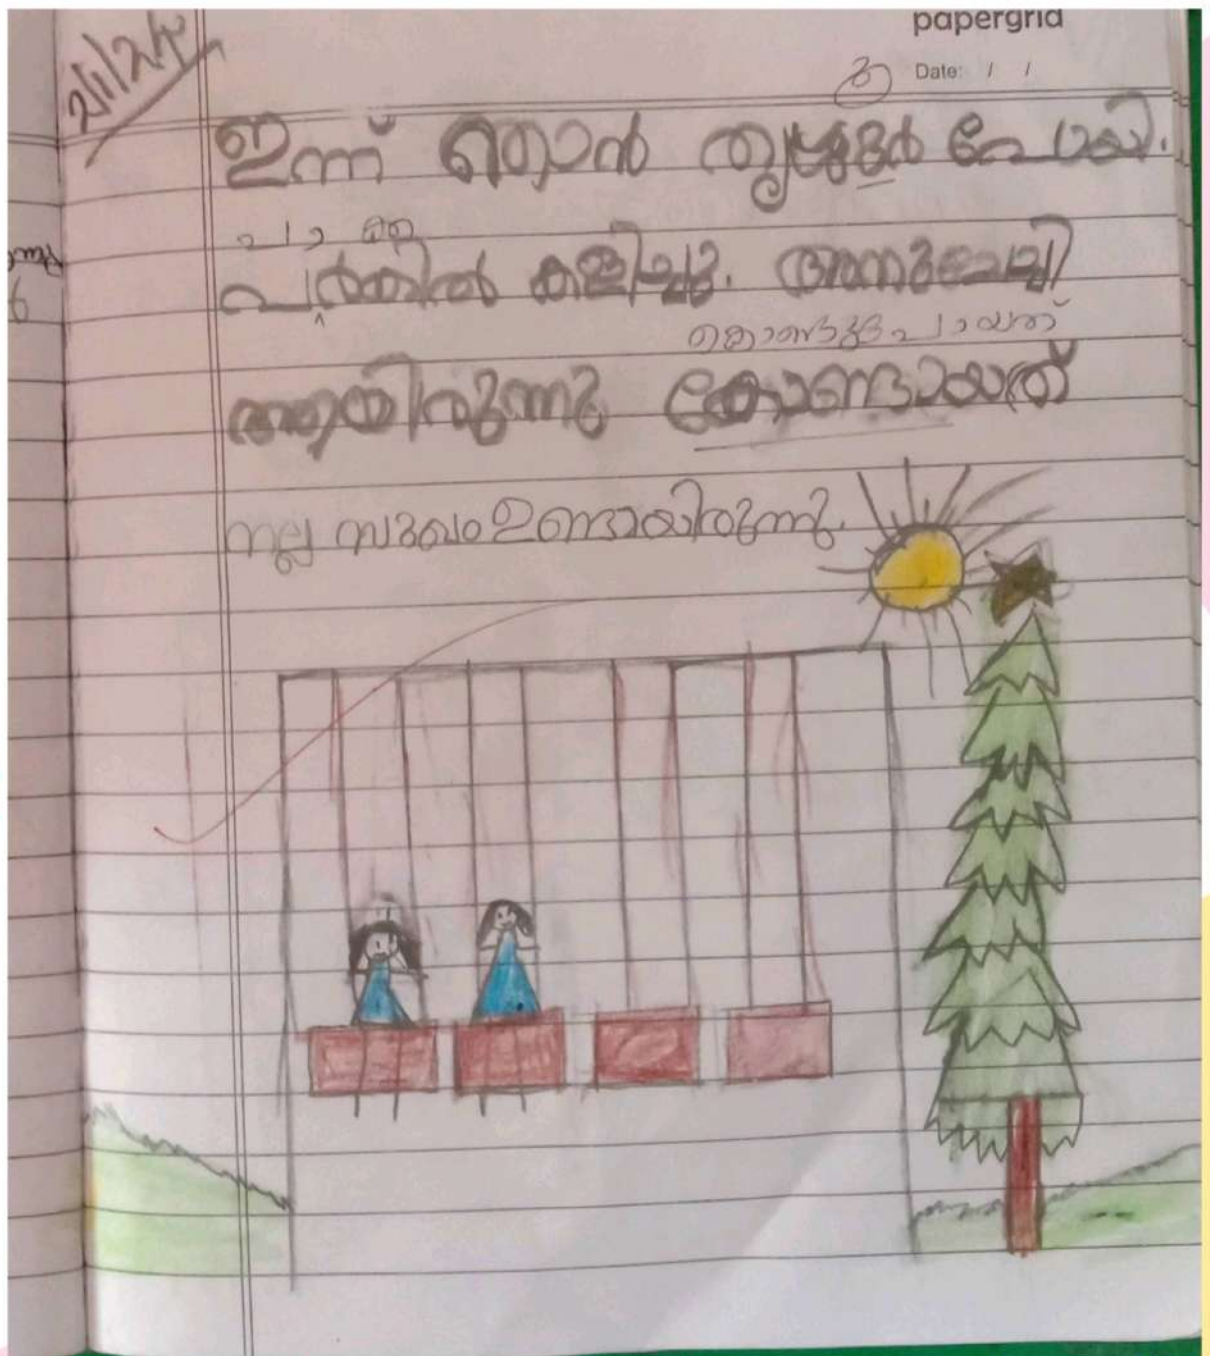 papergrid
Date: / /
2/1/24
ഇന്ന് ഞാൻ തൃശ്ശൂർ പോയി.
പാ ർക്കി
പർക്കിൽ കളിച്ചു. അനുചേച്ചി
കൊണ്ടുപോയത്
ആയിരുന്നു കോണ്ടായത്
നല്ല സുഖം ഉണ്ടായിരുന്നു.